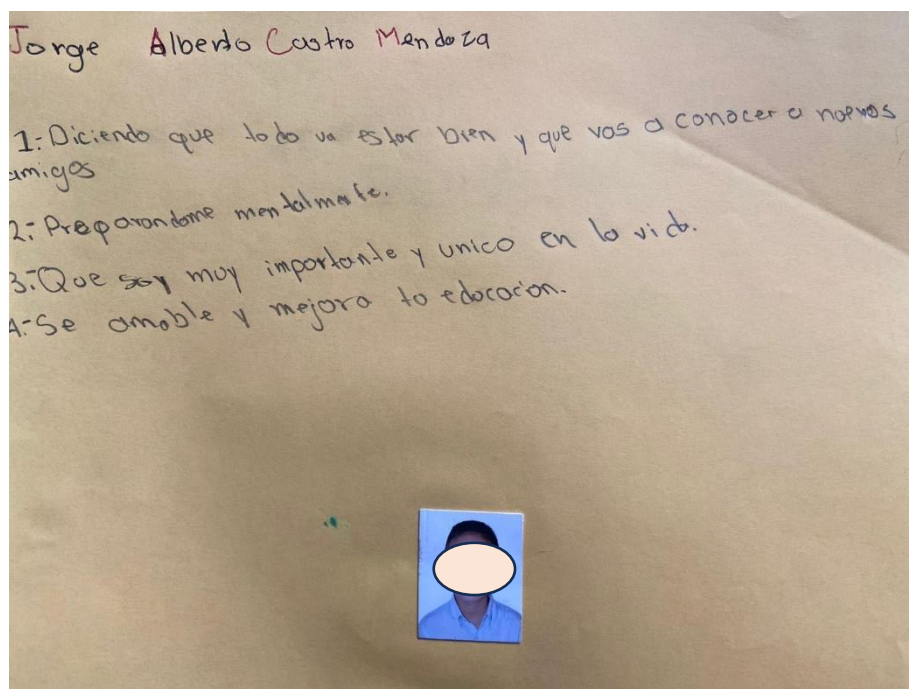 Jorge Alberto Castro Mendoza
1:- Diciendo que todo va estar bien y que vas a conocer a nuevos
amigos
2:- Preparandome mentalmente.
3:- Que soy muy importante y unico en la vida.
4:- Se amable y mejora tu educacion.